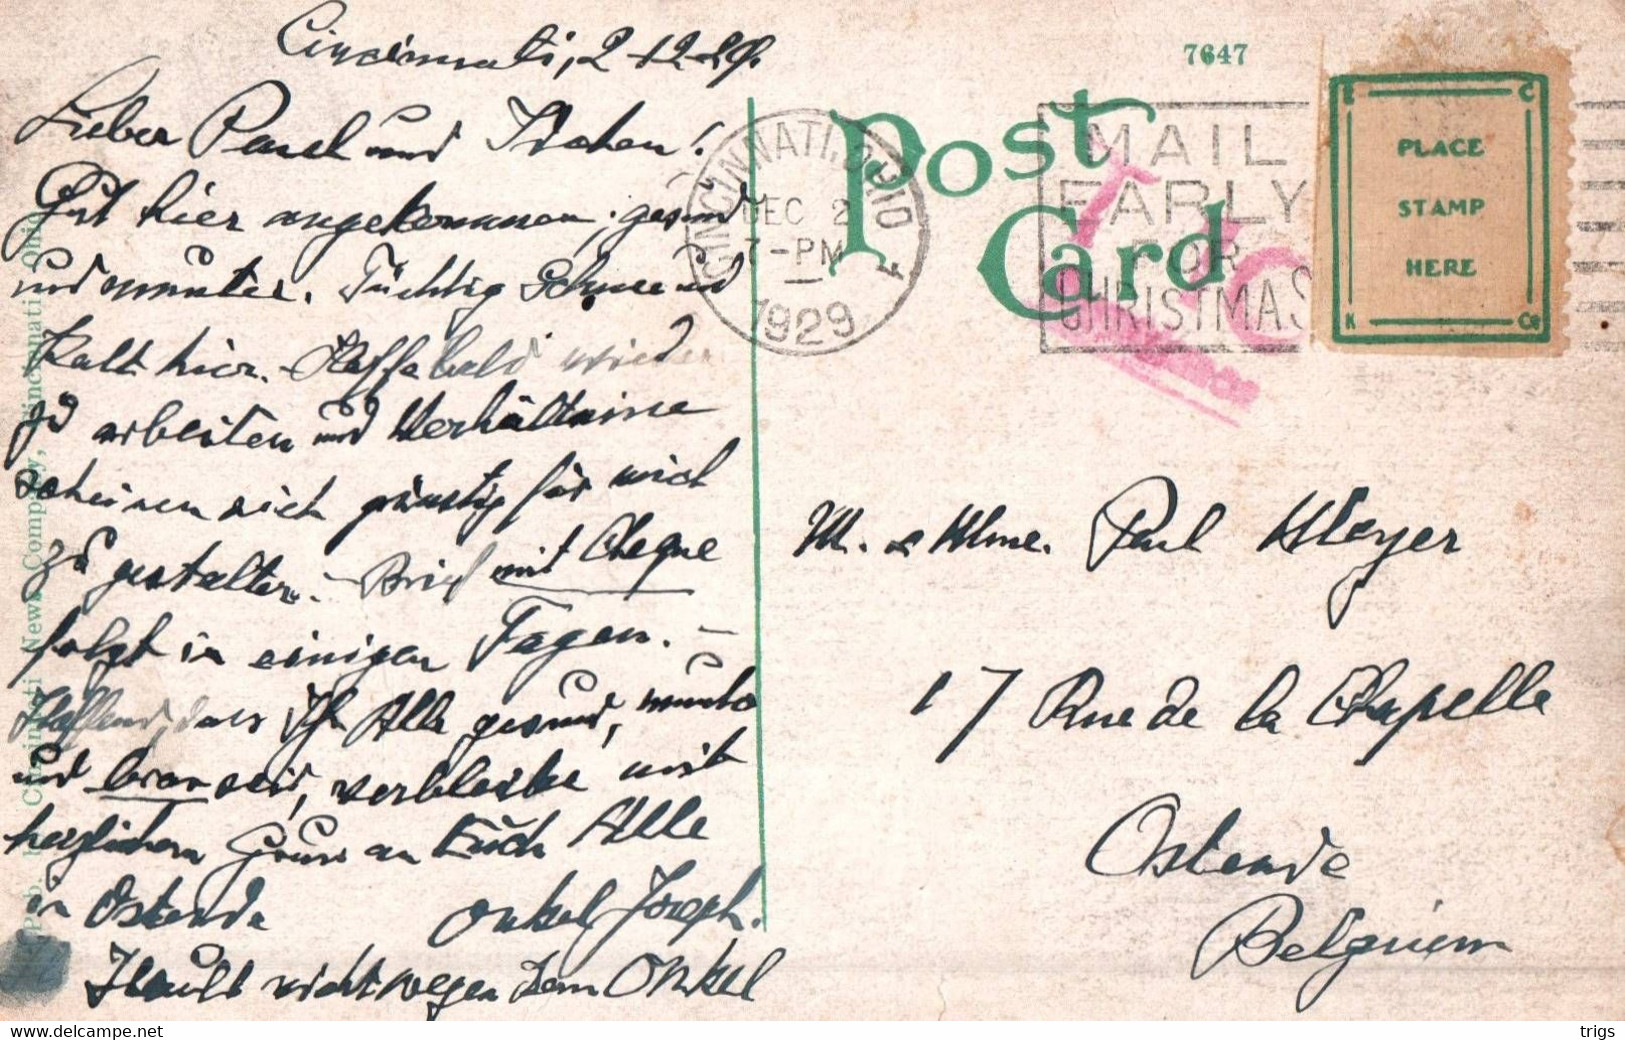 Cincinnati, 2-12-29.
Lieber Paul und
Gut hier angekommen, gesund
und munter. Tüchtig Schnee und
Kalt hier. - Hoffe bald wieder
zu arbeiten und Verhältnisse
scheinen sich günstig für mich
zu gestalten. - Brief mit Cheque
folgt in einigen Tagen. -
Hoffend, dass Ihr Alle gesund, munter
und brav seid, verbleibe mit
herzlichem Gruss an Euch Alle
in Ostende Onkel Joseph.
Heult nicht wegen dem Onkel
Pub. by Cincinnati News Company, Cincinnati, Ohio
7647
Post Card
CINCINNATI, OHIO
DEC 2
7-PM
1929
1
MAIL
EARLY
FOR
CHRISTMAS
PLACE
STAMP
HERE
M. & Mme. Paul Meyer
17 Rue de la Chapelle
Ostende
Belgium
trigs